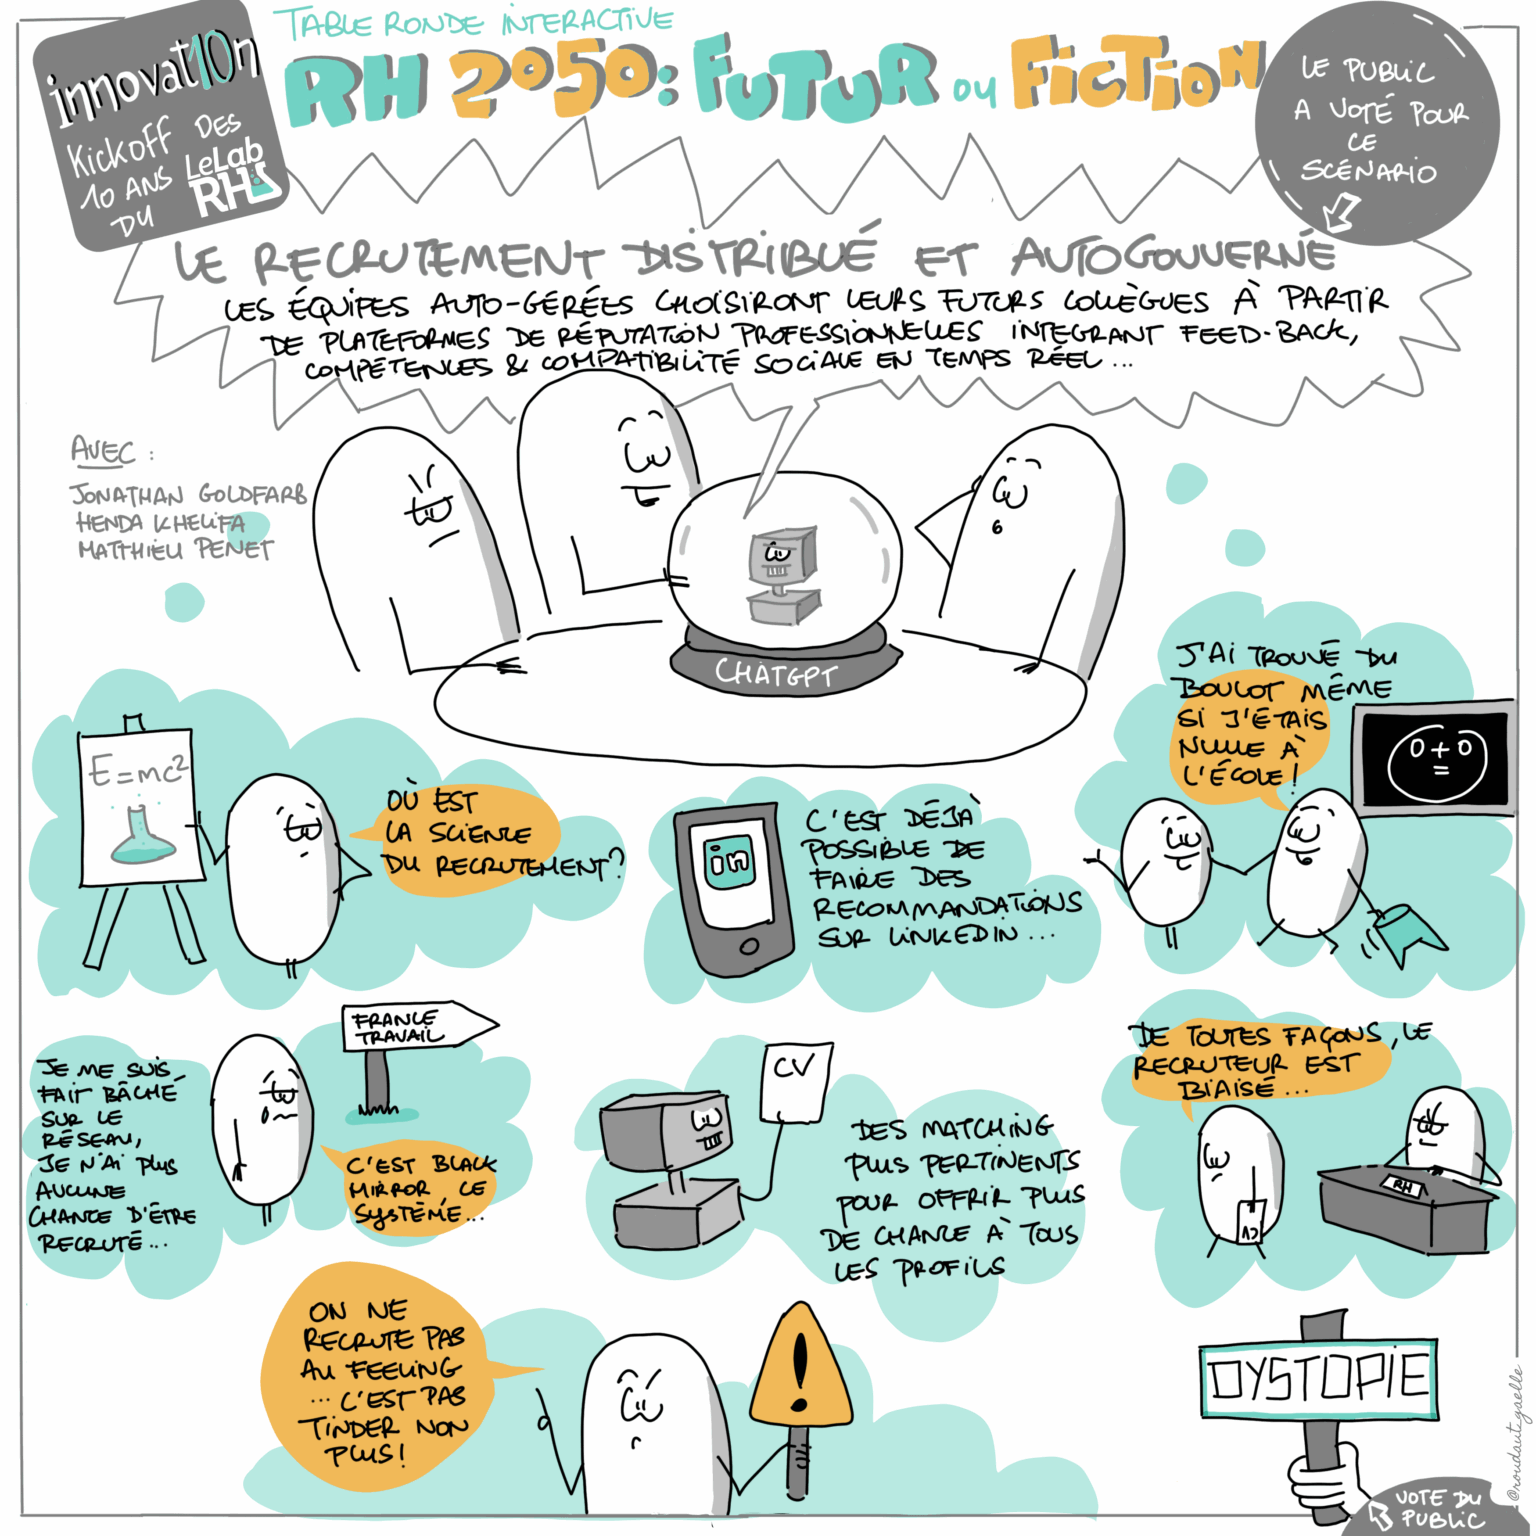 TABLE RONDE INTERACTIVE
RH 2050: FUTUR OU FICTION
innovat10n
KICKOFF DES
10 ANS LeLab
DU RH
LE PUBLIC
A VOTÉ POUR
CE
SCÉNARIO
LE RECRUTEMENT DISTRIBUÉ ET AUTOGOUVERNÉ
LES ÉQUIPES AUTO-GÉRÉES CHOISIRONT LEURS FUTURS COLLÈGUES À PARTIR
DE PLATEFORMES DE RÉPUTATION PROFESSIONNELLES INTEGRANT FEED-BACK,
COMPÉTENCES & COMPATIBILITÉ SOCIALE EN TEMPS RÉEL ...
AVEC :
JONATHAN GOLDFARB
HENDA KHELIFA
MATTHIEU PENET
CHATGPT
E=mc²
OÙ EST
LA SCIENCE
DU RECRUTEMENT?
in
C'EST DÉJÀ
POSSIBLE DE
FAIRE DES
RECOMMANDATIONS
SUR LINKEDIN ...
J'AI TROUVÉ DU
BOULOT MÊME
SI J'ÉTAIS
NULLE À
L'ÉCOLE!
0+0
=
JE ME SUIS
FAIT BÂCHÉ
SUR LE
RÉSEAU,
JE N'AI PLUS
AUCUNE
CHANCE D'ÊTRE
RECRUTÉ ...
FRANCE
TRAVAIL
C'EST BLACK
MIRROR, CE
SYSTÈME...
CV
DES MATCHING
PLUS PERTINENTS
POUR OFFRIR PLUS
DE CHANCE À TOUS
LES PROFILS
DE TOUTES FAÇONS, LE
RECRUTEUR EST
BIAISÉ...
CV
RH
ON NE
RECRUTE PAS
AU FEELING
... C'EST PAS
TINDER NON
PLUS!
!
DYSTOPIE
VOTE DU
PUBLIC
@roudautgaelle